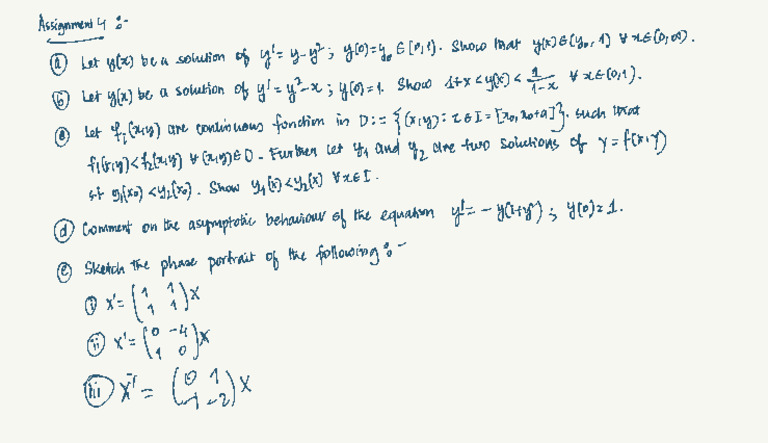 Assignment 4 :-
(a) Let y(x) be a solution of y' = y-y²; y(0)=y₀ ∈ [0,1). Show that y(x)∈(y₀, 1) ∀ x∈(0,∞).
(b) Let y(x) be a solution of y' = y²-x; y(0)=1. Show 1+x < y(x) < 1/(1-x) ∀ x∈(0,1).
Let fᵢ(x,y) are continuous function in D := {(x,y): x∈I = [x₀, x₀+a]}. such that
f₁(x,y) < f₂(x,y) ∀ (x,y)∈D. Further let y₁ and y₂ are two solutions of y = f(x,y)
st y₁(x₀) < y₂(x₀). Show y₁(x) < y₂(x) ∀x∈I.
(d) Comment on the asymptotic behaviour of the equation y' = -y(1+y²); y(0)=1.
(e) Sketch the phase portrait of the following :-
(i) x' = (1 1
1 1) x
(ii) x' = (0 -4
1 0) x
(iii) x' = (0 1
-1 -2) x